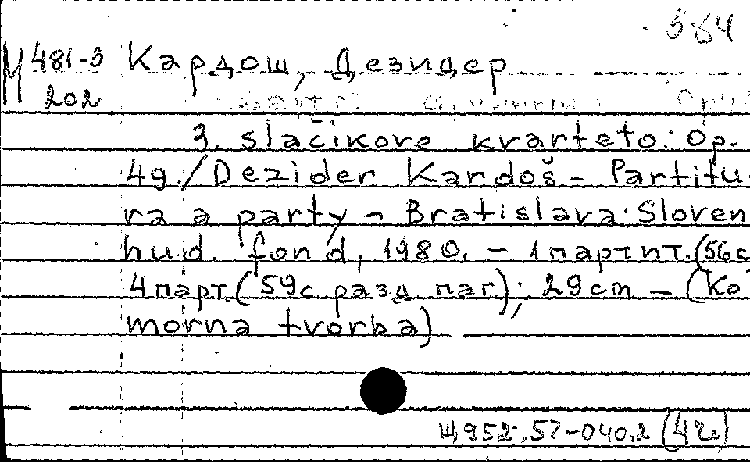 584
М 481-3 Кардош, Дезидер
202
3. slačikove kvarteto: Op.
49./Dezider Kardoš - Partitu
ra a party - Bratislava: Sloven
hud. fond, 1980. - 1 парт ит. (56 с
4 парт. (59 с разд. паг); 29 cm - (Ko
morna tvorba)
Щ952.57-040.2 (4Че)